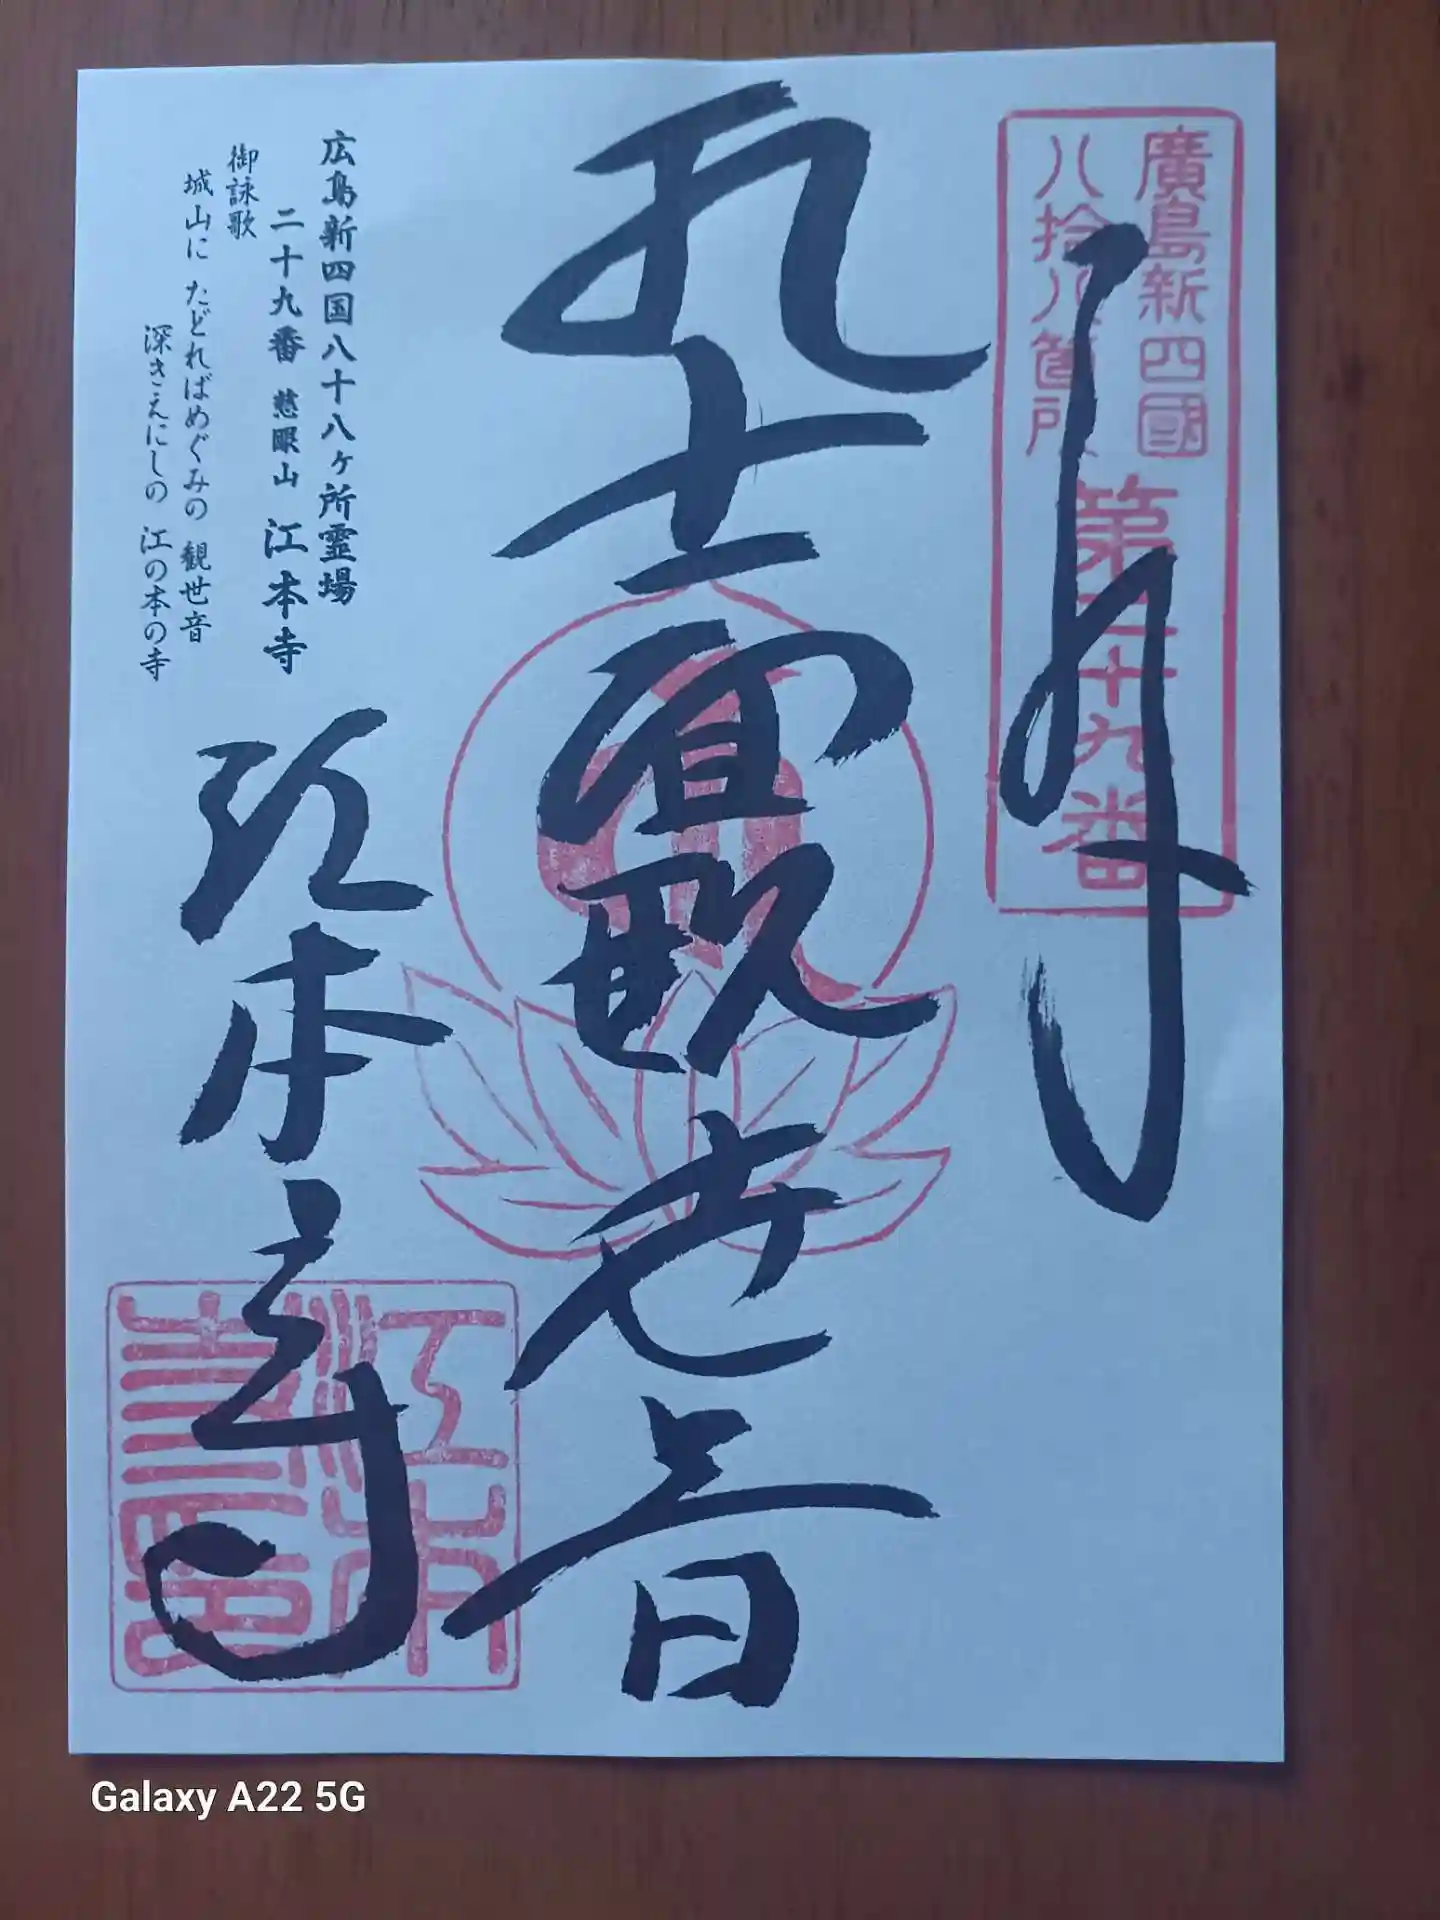 廣島新四國
八拾八箇所
第二十九番
十一面観世音
広島新四国八十八ヶ所霊場
二十九番 慈眼山 江本寺
御詠歌
城山に たどればめぐみの 観世音
深きえにしの 江の本の寺
江本寺
江本
寺印
Galaxy A22 5G